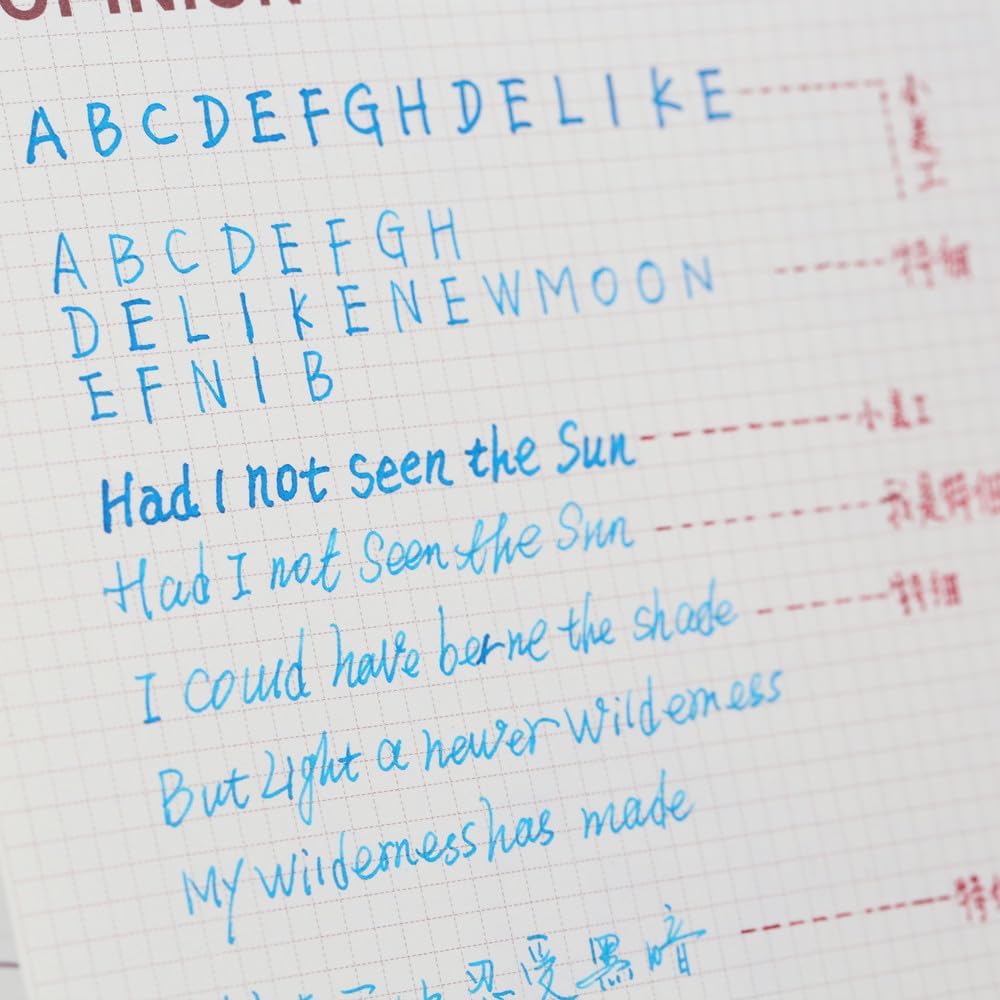 OPINION
ABCDEFGHDELIKE
小美工
ABCDEFGH
DELIKENEWMOON 特细
EFNIB
Had I not seen the Sun 小美工
Had I not Seen the Sun 我是特细
I could have berne the shade 特细
But Light a newer Wilderness
My Wilderness has made
忍受黑暗 特细